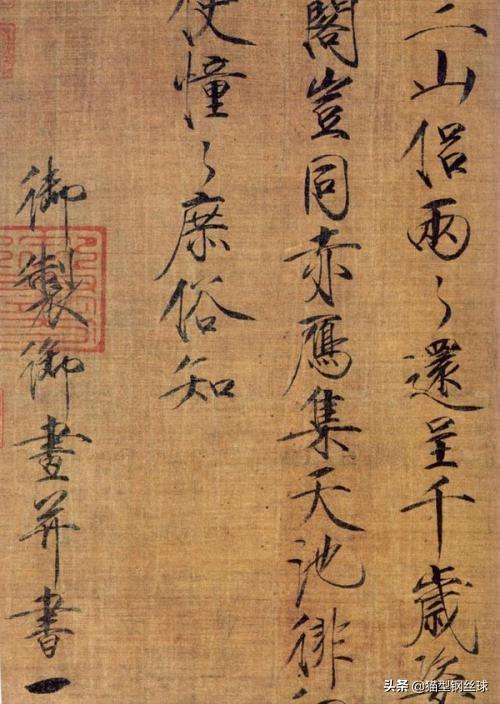 三山侶兩〻還呈千歲姿
閣豈同赤鴈集天池徘
使憧〻庶俗知
御製御畫并書
头条 @猫型钢丝球